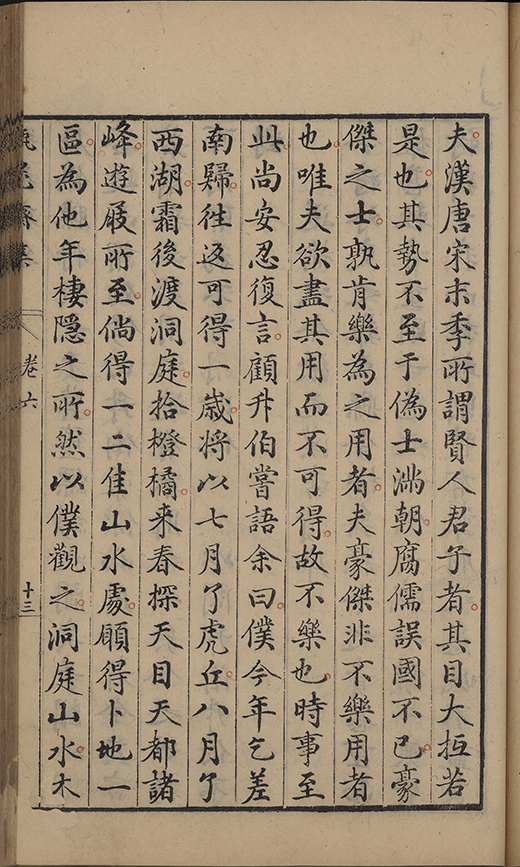 夫漢唐宋末季所謂賢人君子者其目大抵若
是也其勢不至于偽士滿朝腐儒誤國不已豪
傑之士孰肯樂為之用者夫豪傑非不樂用者
也唯夫欲盡其用而不可得故不樂也時事至
此尚安忍復言顧升伯嘗語余曰僕今年乞差
南歸往返可得一歲將以七月了虎丘八月了
西湖霜後渡洞庭拾橙橘來春探天目天都諸
峰遊屐所至倘得一二佳山水處願得卜地一
區為他年棲隱之所然以僕觀之洞庭山水木
卷六
十三